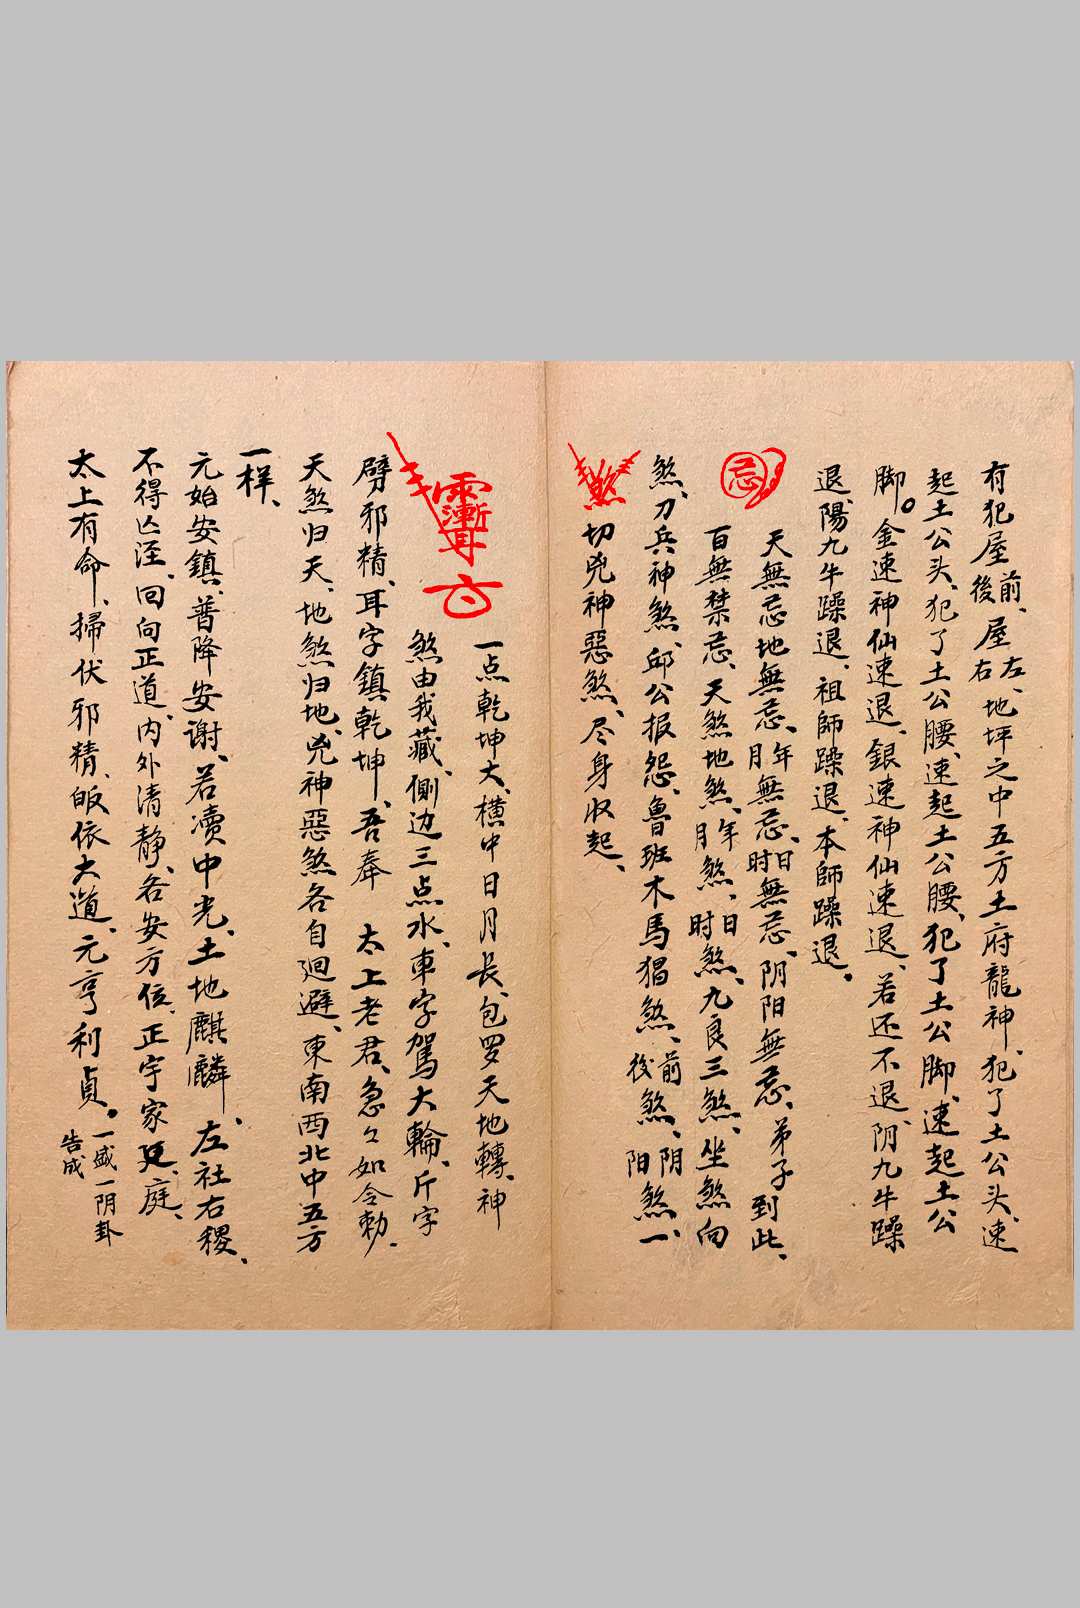 有犯屋前後、屋左右、地坪之中五方土府龍神、犯了土公头、速
起土公头、犯了土公腰、速起土公腰、犯了土公脚、速起土公
脚。金速神仙速退、銀速神仙速退、若还不退、阴九牛躁
退、陽九牛躁退、祖師躁退、本師躁退。
忌
天無忌地無忌、年月無忌、日时無忌、阴阳無忌、弟子到此、
百無禁忌、天煞地煞、年月煞、日时煞、九良三煞、坐煞向
煞、刀兵神煞、邱公报怨、魯班木馬猖煞、前後煞、阴阳煞、一
煞
切兇神惡煞、尽身收起、
一点乾坤大、横中日月长、包罗天地轉、神
煞由我藏、側边三点水、車字駕大輪、斤字
劈邪精、耳字鎮乾坤、吾奉 太上老君、急々如令勅、
天煞归天、地煞归地、兇神惡煞各自廻避、東南西北中五方
一样、
元始安鎮、普降安谢、若凟中光、土地麒麟、左社右稷、
不得亡泾、回向正道、内外清静、各安方位、正宇家廷、庭、
太上有命、掃伏邪精、皈依大道、元亨利貞。一盛一阴卦
告成